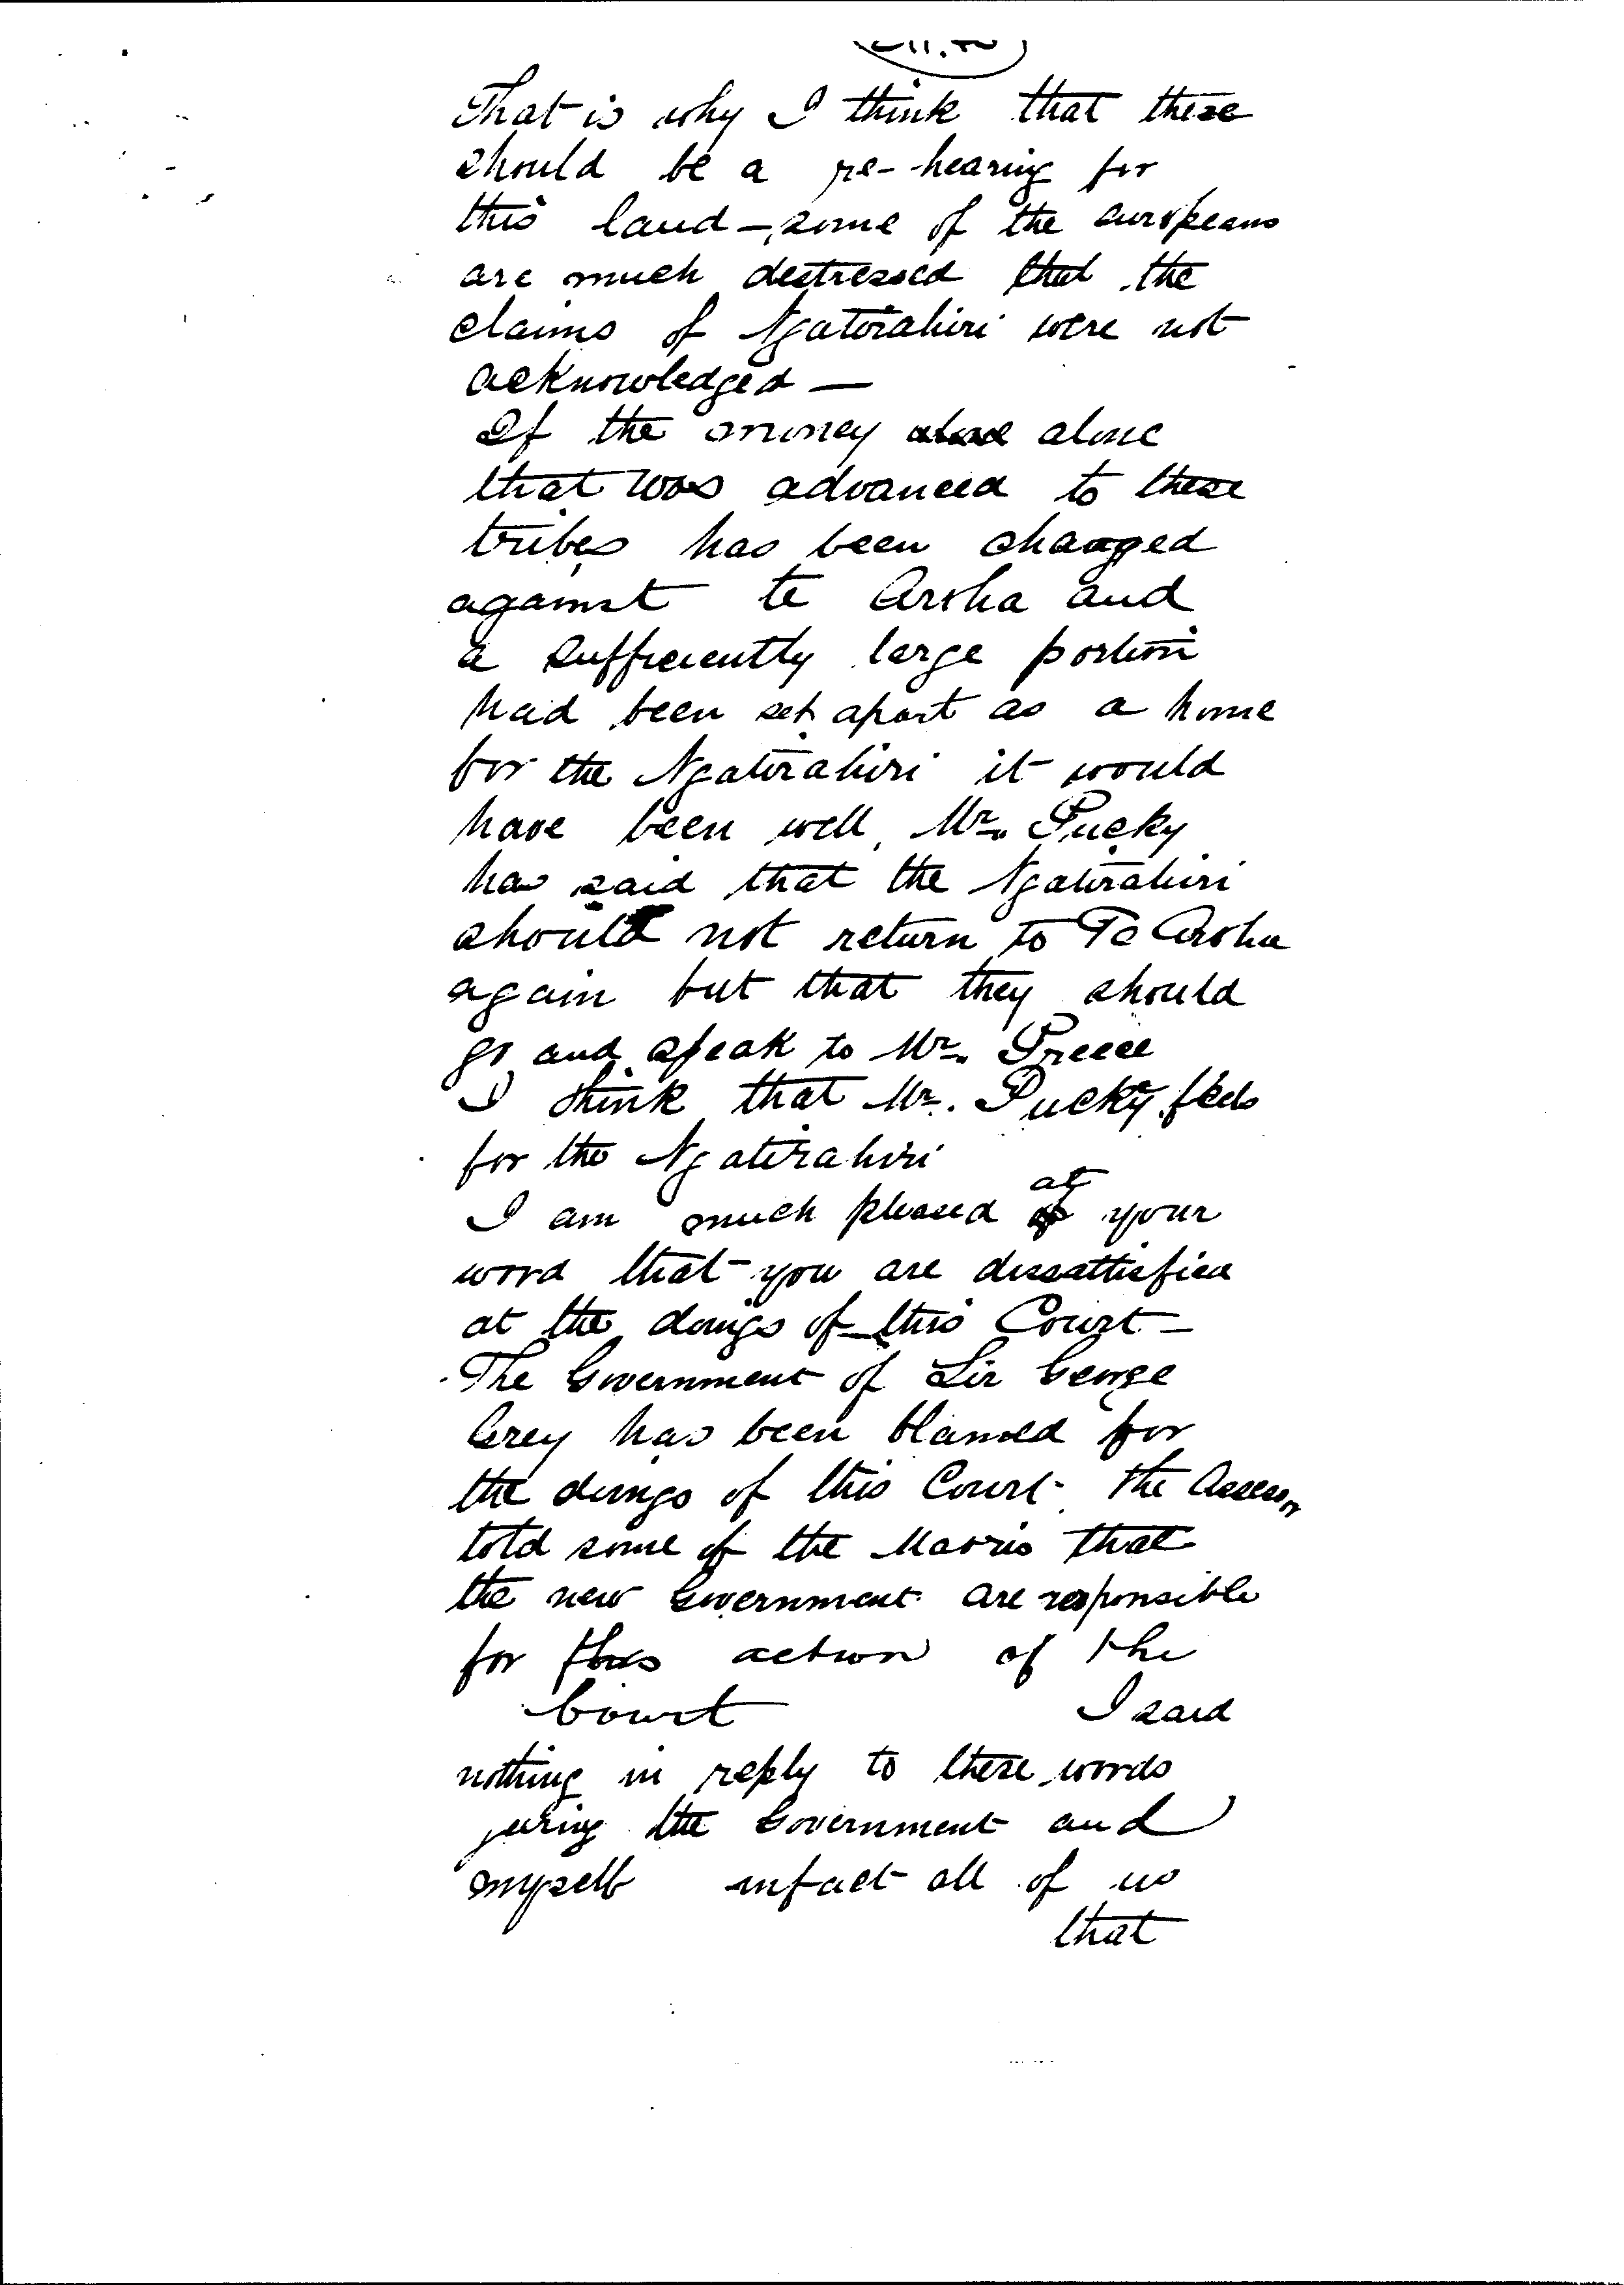 That is why I think that there
should be a re-hearing for
this land - some of the europeans
are much destressed that the
claims of Ngatirahiri were not
acknowledged —
If the money alone alone
that was advanced to these
tribes has been charged
against te Aroha and
a sufficiently large portion
had been set apart as a home
for the Ngatirahiri it would
have been well, Mr. Pucky
has said that the Ngatirahiri
should not return to Te Aroha
again but that they should
go and speak to Mr. Preece
I think that Mr. Pucky feels
for the Ngatirahiri
I am much pleased of at your
word that you are dissattisfied
at the doings of this Court -
The Government of Sir George
Grey has been blamed for
the doings of this Court. The Assessor
told some of the Maoris that
the new Government are responsible
for this action of the
Court I said
nothing in reply to these words
the Government and
myself infact all of us
that